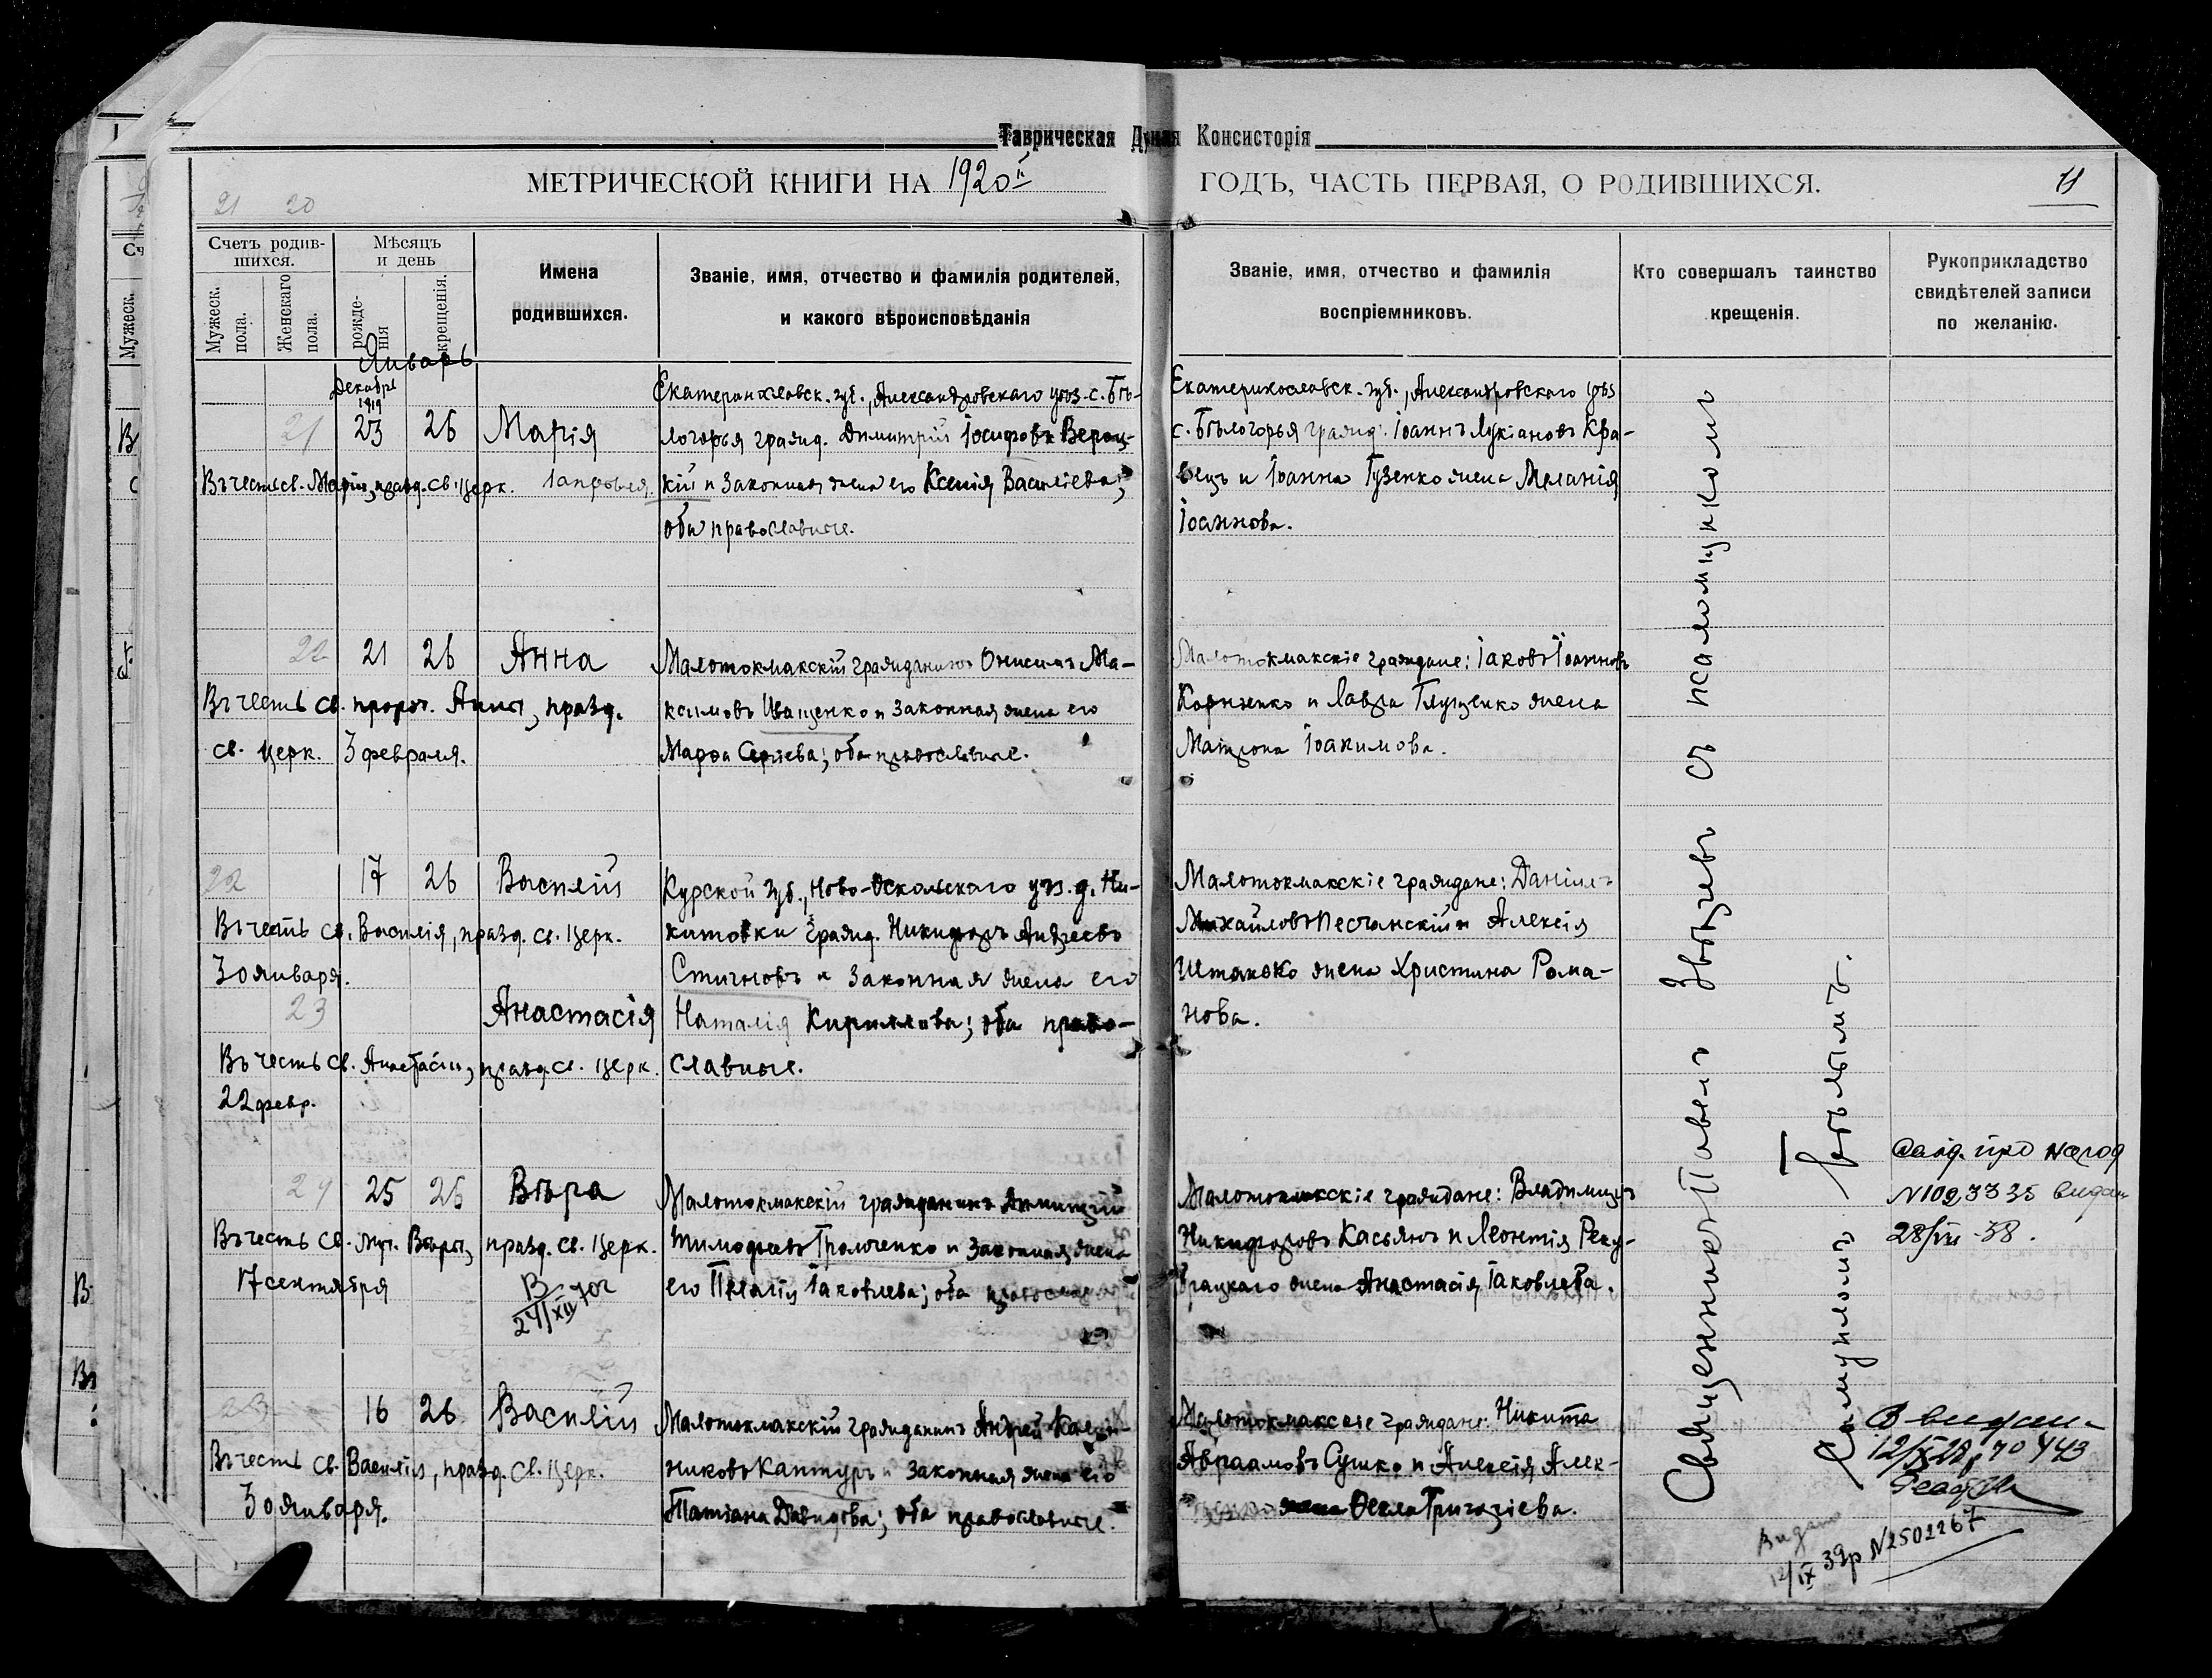 Таврическая Духная Консисторія
МЕТРИЧЕСКОЙ КНИГИ НА 1920й ГОДЪ, ЧАСТЬ ПЕРВАЯ, О РОДИВШИХСЯ.
11
21 20
Счетъ родив-
шихся.
Мужеск.
пола.
Женскаго
пола.
Мѣсяцъ
и день
рожде-
нія
крещенія.
Имена
родившихся.
Званіе, имя, отчество и фамилія родителей,
и какого вѣроисповѣданія
Званіе, имя, отчество и фамилія
воспріемниковъ.
Кто совершалъ таинство
крещенія.
Рукоприкладство
свидѣтелей записи
по желанію.
Январь
Декабрь
1919
21 23 26 Марія
Въ честь св. Маріи, празд. св. церк. 1 апрѣля.
Екатеринославск. губ., Александровскаго уѣз. с. Бѣ-
логорья гражд. Димитрій Іосифовъ
кій и законная жена его Ксенія Василіева;
оба православные.
Екатеринославск. губ., Александровскаго уѣз
с. Бѣлогорья гражд. Іоаннъ Лукіановъ Кра-
вецъ и Іоанна Гузенко жена Меланія
Іоаннова.
22 21 26 Анна
Въ честь св. прор. Анны, празд.
св. церк. 3 февраля.
Малотокмакскій гражданинъ Онисимъ Ма-
ксимовъ Иващенко и законная жена его
Марѳа Сергіева; оба православные.
Малотокмакскіе граждане: Іаковъ Іоанновъ
Корніенко и Лавра Глущенко жена
Матрона Іоакимова.
22 17 26 Василій
Въ честь св. Василія, празд. св. церк.
30 января.
23 Анастасія
Въ честь св. Анастасіи, празд. св. церк.
22 февр.
Курской губ., Ново-Оскольскаго уѣз. д. Ни-
китовки гражд. Никифоръ Андреевъ
и законная жена его
Наталія Кириллова; оба право-
славные.
Малотокмакскіе граждане: Даніилъ
Михайловъ Песчанскій и Алексія
жена Христина Рома-
нова.
24 25 26 Вѣра
Въ честь св. муч. Вѣры, празд. св. церк.
17 сентября
В
24/XII
Малотокмакскій гражданинъ Димитрій
Тимофеевъ и законная жена
его Пелагія Іаковлева; оба православные
Малотокмакскіе граждане: Владимиръ
Никифоровъ Касьянъ и Леонтія
жена Анастасія Іаковлева.
про народ
N1093335 видан
28/VII-38.
23 16 26 Василій
Въ честь св. Василія, празд. св. церк.
30 января.
Малотокмакскій гражданинъ Андрей
никовъ Каптуръ и законная жена его
Татіана Давидова; оба православные.
Малотокмакские граждане: Никита
Авраамовъ Сушко и Алексія Алек-
жена Ѳекла Григоріева.
Священникъ Павелъ Звѣревъ съ псаломщикомъ
Самуиломъ Бѣлымъ.
Видано
12/IX 39р N2502267